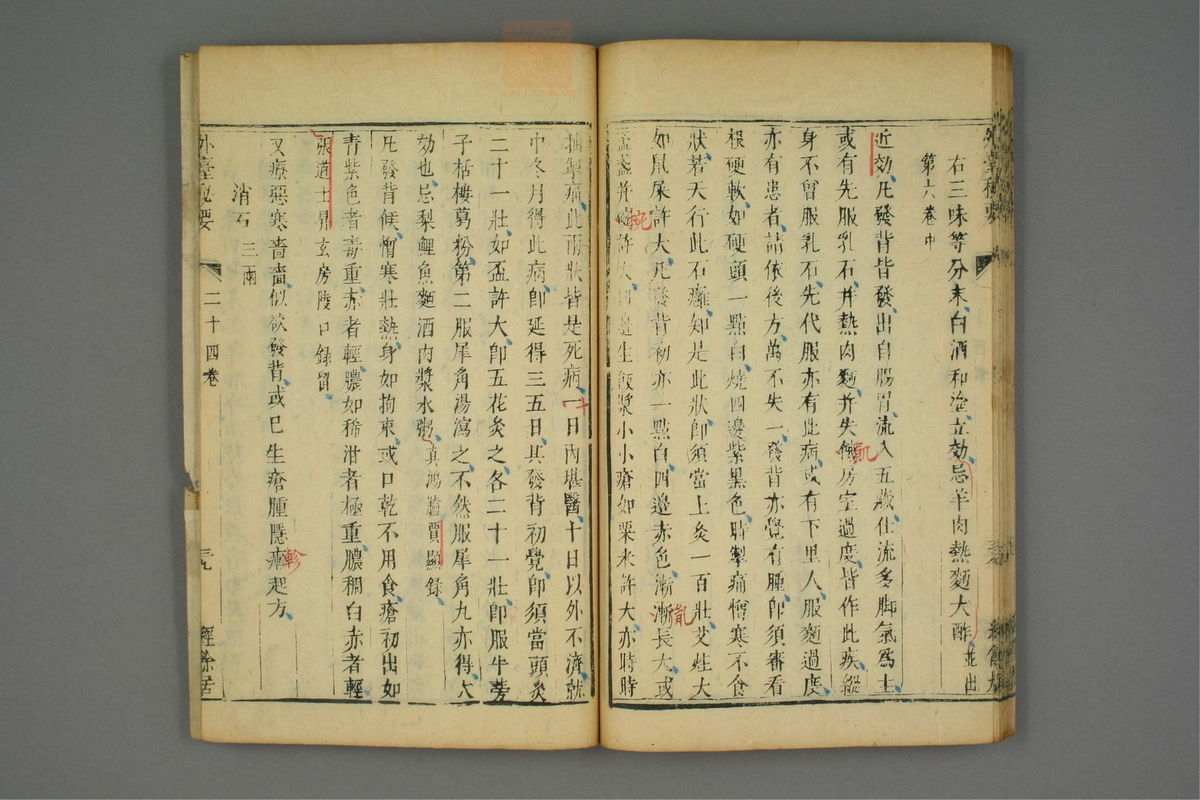 右三味等分末白酒和塗立効忌羊肉熱麵大酢並出
第六卷中
近効凡發背皆發出自腸胃流入五藏仕流多脚氣為主
或有先服乳石并熱肉麵并失飢房室過度皆作此疾縱
身不曾服乳石先代服亦有此病或有下里人服麵過度
亦有患者請依後方萬不失一發背亦覺有腫卽須審看
根硬軟如硬頭一點白燒四邊紫黑色時掣痛憎寒不食
狀若天行此石癰知是此狀卽須當上灸一百壯艾炷大
如鼠屎許大凡發背初亦一點白四邊赤色漸漸長大或
盞許大四邊生飯漿小小瘡如粟米許大亦時時
抽掣痛此兩狀皆是死病一日內堪醫十日以外不濟就
中冬月得此病卽延得三五日其發背初覺卽須當頭灸
二十一壯如盃許大卽五花灸之各二十一壯卽服牛蒡
子栝樓葛粉第二服犀角湯瀉之不然服犀角丸亦得大
効也忌梨鯉魚麵酒肉漿水粥眞鴻臚賈顯録
凡發背候憎寒壯熱身如拘束或口乾不用食瘡初出如
青紫色者毒重赤者輕膿如稀泔者極重膿稠白赤者輕
張道士昇玄房陵口録留
又療惡寒嗇嗇似欲發背或已生瘡腫癮疹起方
消石三兩
外臺秘要
二十四卷
三九
經餘居